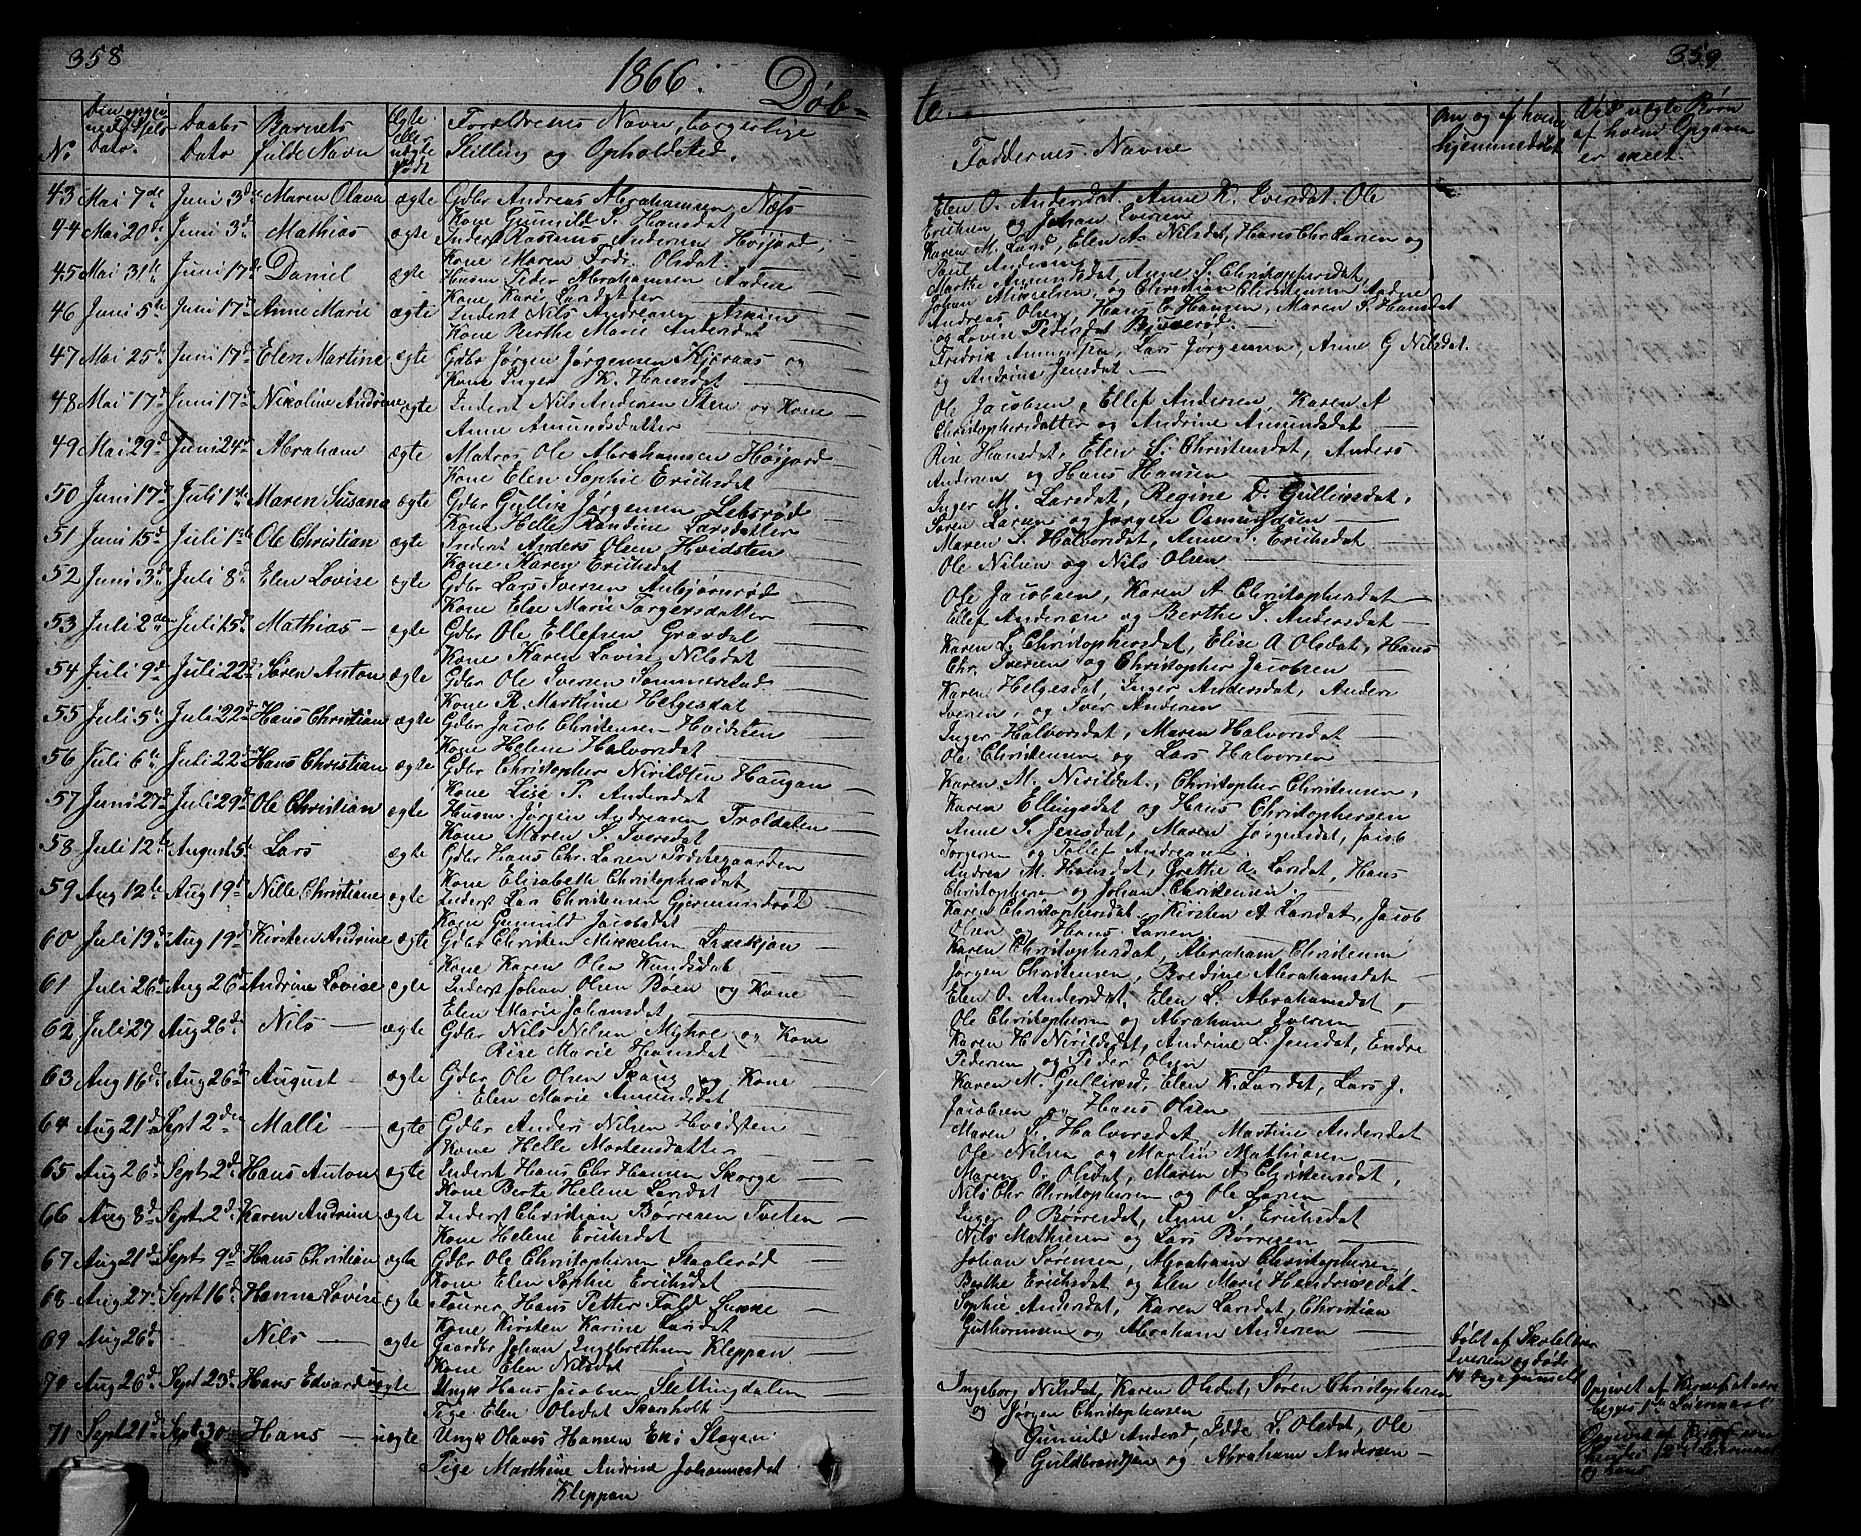 358
1866. Døb-
No
Daabs Dato
Barnets fulde Navn
Ægte eller uægte født
Forældrenes Navn, borgerlige Stilling og Opholdsted.
43 Mai 7de Juni 3de Maren Olava ægte Gdbr Andreas Abrahamsen Næss
Kone Gunnild S. Hansdat
44 Mai 20de Juni 3d Mathias ægte Inderst Rasmus Andersen Høijord,
Kone Maren Olsdat.
45 Mai 31te Juni 17d Daniel ægte Husm Peder Abrahamsen Aadne
Kone Kari Larsdatter
46 Juni 5te Juni 17d Anne Marie ægte Inderst Nils Andreasen
Kone Berthe Marie Andersdat
47 Mai 25d Juni 17d Elen Martine ægte Gdbr Jørgen Jørgensen Kjeraas og
Kone Inger K. Hansdat
48 Mai 17d Juni 17d Nikoline Andrine ægte Inderst Nils Andersen Sten og Kone
Anne Amundsdatter
49 Mai 29d Juni 24d Abraham ægte Matros Ole Abrahamsen Høijord
Kone Elen Sophie Erichsdat
50 Juni 17d Juli 1ste Maren Susana ægte Gdbr Gullik Jørgensen Lebsrød
Kone Helle Randine Larsdatter
51 Juni 15d Juli 1ste Ole Christian ægte Inderst Anders Olsen Hvidsten
Kone Karen Erichsdat
52 Juni 3d Juli 8d Elen Lovise ægte Gdbr Lars Iversen Aubjørnrød
Kone Else Marie Torgersdatter
53 Juli 2den Juli 15d Mathias ægte Gdbr Ole Ellefsen Gravdal
Kone Karen Lovise Nilsdat
54 Juli 9d Juli 22d Søren Anton ægte Gdbr Ole Iversen Sommerstad
Kone R. Marthine Helgesdat
55 Juli 5te Juli 22d Hans Christian ægte Gdbr Jacob Christensen Hvidsten
Kone Helene Halvorsdat
56 Juli 6te Juli 22d Hans Christian ægte Gdbr Christopher Nirildsen Haugan
Kone Lise P. Andersdat
57 Juni 27d Juli 29d Ole Christian ægte Husm Jørgen Andreasen Troldalen
Kone Maren S. Iversdat
58 Juli 12te August 5te Lars ægte Gdbr Hans Chr. Larsen Præstegaarden
Kone Elisabeth Christophersdat
59 Aug 12te Aug 19d Nille Christiane ægte Inderst Lars Christensen Gjermundrød
Kone Gunnild Jacobsdat
60 Juli 19d Aug 19d Kirsten Andrine ægte Gdbr Christen Mikkelsen
Kone Karen Olen Knudsdat
61 Juli 26d Aug 26d Andrine Lovise ægte Inderst Johan Olsen Boen og Kone
Elen Marie Johansdat
62 Juli 27 Aug 26de Nils ægte Gdbr Nils Nilsen Myhre og Kone
Rise Marie Hansdat
63 Aug 16d Aug 26d August ægte Gdbr Ole Olsen Skaug og Kone
Elen Marie Amundsdat
64 Aug 21d Sept 2den Malli ægte Gdbr Anders Nilsen Hvidsten
Kone Helle Mortensdatter
65 Aug 26d Sept 2d Hans Anton ægte Inderst Hans Chr Hansen Skorge
Kone Berte Helene Larsdat
66 Aug 8d Sept 2d Karen Andrine ægte Inderst Christian Børresen Tveten
Kone Helene Erichsdat
67 Aug 21d Sept 9d Hans Christian ægte Gdbr Ole Christophersen Staalerød
Kone Elen Sophie Erichsdat
68 Aug 27d Sept 16d Hanna Lovise ægte Hans Petter Fold
Kone Kirsten Karine Larsdat
69 Aug 26d Nils ægte Gaardbr Johan Ingebrethsen Kleppan
Kone Elen Nilsdat
70 Aug 26d Sept 23d Hans Edvard uægte Ungk Hans Jacobsen Slettingdalen
Pige Elen Olsdat Skarsholt
71 Sept 21d Sept 30 Hans uægte Ungk Olaves Hansen Eks Slagen
Pige Marthine Andrine Johannesdat
Kleppan
359
te.
Faddernes Navne
Om og af hvem hjemmedøbt
Ved uægte Børn af hvem Opgaven er skeet.
Elen O. Andersdat. Anne K. Iversdat. Ole
Erichsen og Johan Iversen
Karen M. Larsd, Elen A. Nilsdat, Hans Chr Larsen og
Paul Andersen
Marthe Amundsdat, Anne S. Christophersdat,
Johan Mikkelsen, og Christian Christensen Aadne
Andreas Olsen, Hans E Hansen, Maren S. Hansdat
og Lovise Pedersdat
Fredrik Amundsen, Lars Jørgensen, Anne G Nilsdat.
og Andrine Jensdat.
Ole Jacobsen, Ellef Andersen, Karen A
Christophersdatter og Andrine Amundsdat
Rise Hansdat, Elen S. Christensdat, Anders
Andersen og Hans Hansen
Inger M. Larsdat, Regine D. Gulliksdat,
Søren Larsen og Jørgen Osmundsen
Maren S. Halvorsdat, Anne S. Erichsdat
Ole Nilsen og Nils Olsen
Ole Jacobsen, Karen A. Christophersdat
Ellef Andersen og Berthe S. Andersdat
Karen L. Christophersdat, Elise A Olsdat, Hans
Chr. Iversen og Christopher Jacobsen
Karen Helgesdat, Inger Andersdat, Anders
Iversen, og Iver Andersen
Inger Halvorsdat, Maren Halvorsdat
Ole Christensen og Lars Halvorsen
Karen M. Nirildat, Christopher Christensen,
Karen Ellingsdat og Hans Christophersen
Anne S. Jensdat, Maren Jørgensdat, Jacob
Jørgensen og Tollef Andreasen
Andrea M. Hansdat, Grethe A. Larsdat, Hans
Christophersen og Johan Christensen.
Karen Christophersdat. Kirsten A Larsdat, Jacob
Olsen og Hans Larsen
Karen Christophersdat, Abraham Christensen
Jørgen Christensen, Bredine Abrahamsdat
Elen O. Andersdat, Elen L. Abrahamsdat,
Ole Christophersen og Abraham Iversen
Karen H Nirildsdat, Andrine L. Jensdat, Endre
Pedersen og Peder Olsen
Karen M. Gulliksd, Elen K. Larsdat, Lars J.
Jacobsen og Hans Olsen
Maren S. Halvorsdat Martine Andersdat
Ole Nilsen og Martin Mathiasen
Maren O. Olsdat, Maren A Christensdat,
Nils Chr Christophersen og Ole Larsen
Inger O. Børresdat, Anne S. Erichsdat
Nils Mathiesen og Lars Børresen
Johan Sørensen, Abraham Christophersen,
Berthe Erichsdat og Elen Marie Hendriksdat.
Sophie Andersdat, Karen Larsdat, Christian
Guthormsen og Abraham Andersen
døbt af Skolel.
Iversen og døde
14 Dage gammelt
Ingeborg Nilsdat, Karen Olsdat, Søren Christophersen
og Jørgen Christophersen
Opgivet af
begges 1ste Leiermaal
Gunnild Andersd, Idde L. Olsdat, Ole
Guldbrandsen og Abraham Andersen
Opgivet af
2det Leiermaal
og hans